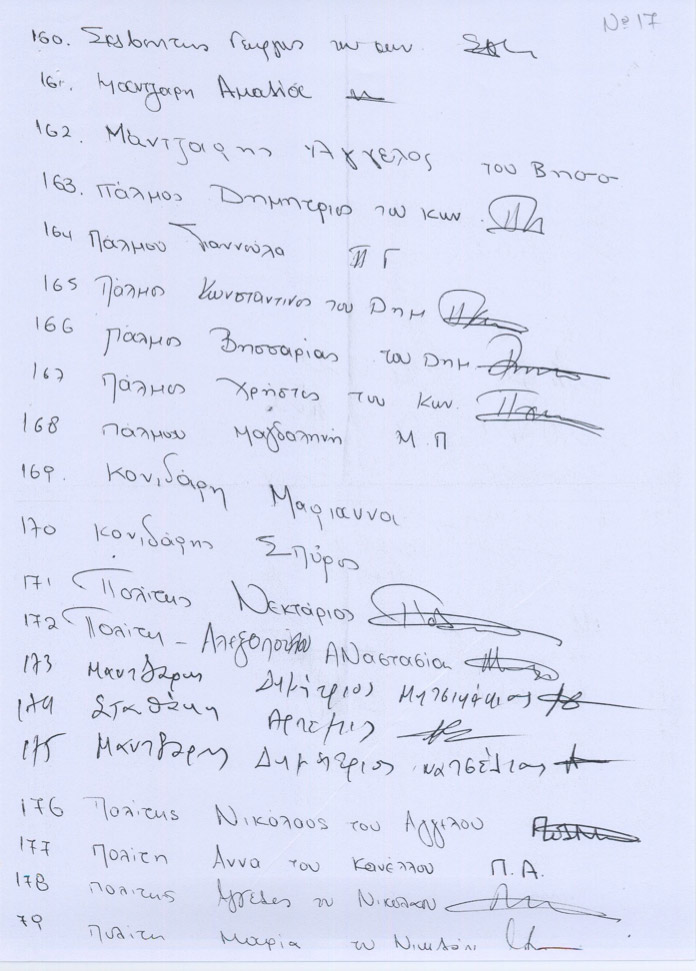 Nº 17
160. Γεώργιος του
161. Μαντζαρη Αμαλία
162. Μάντζαρης Άγγελος του Βησσ
163. Πάλμος Δημήτριος του Κων.
164 Πάλμου Γιαννούλα Π Γ
165 Πάλμος Κωνσταντίνος του Δημ
166 Πάλμος Βησσαρίας του Δημ
167 Πάλμος Χρήστος του Κων.
168 Πάλμου Μαγδαληνή Μ.Π
169. Κονιδάρη Μαριάννα
170 Κονιδάρης Σπύρος
171 Πολίτης Νεκτάριος
172 Πολίτη - Αλεξοπούλου Αναστασία
173 Μαντζαρης Δημήτριος
174 Σταθάκη Άρτεμις
175 Μαντζαρης Δημήτριος
176 Πολίτης Νικόλαος του Αγγέλου
177 Πολίτη Αννα του Κανέλλου Π.Α.
178 Πολίτης Άγγελος του Νικολάου
79 Πολίτη Μαρία του